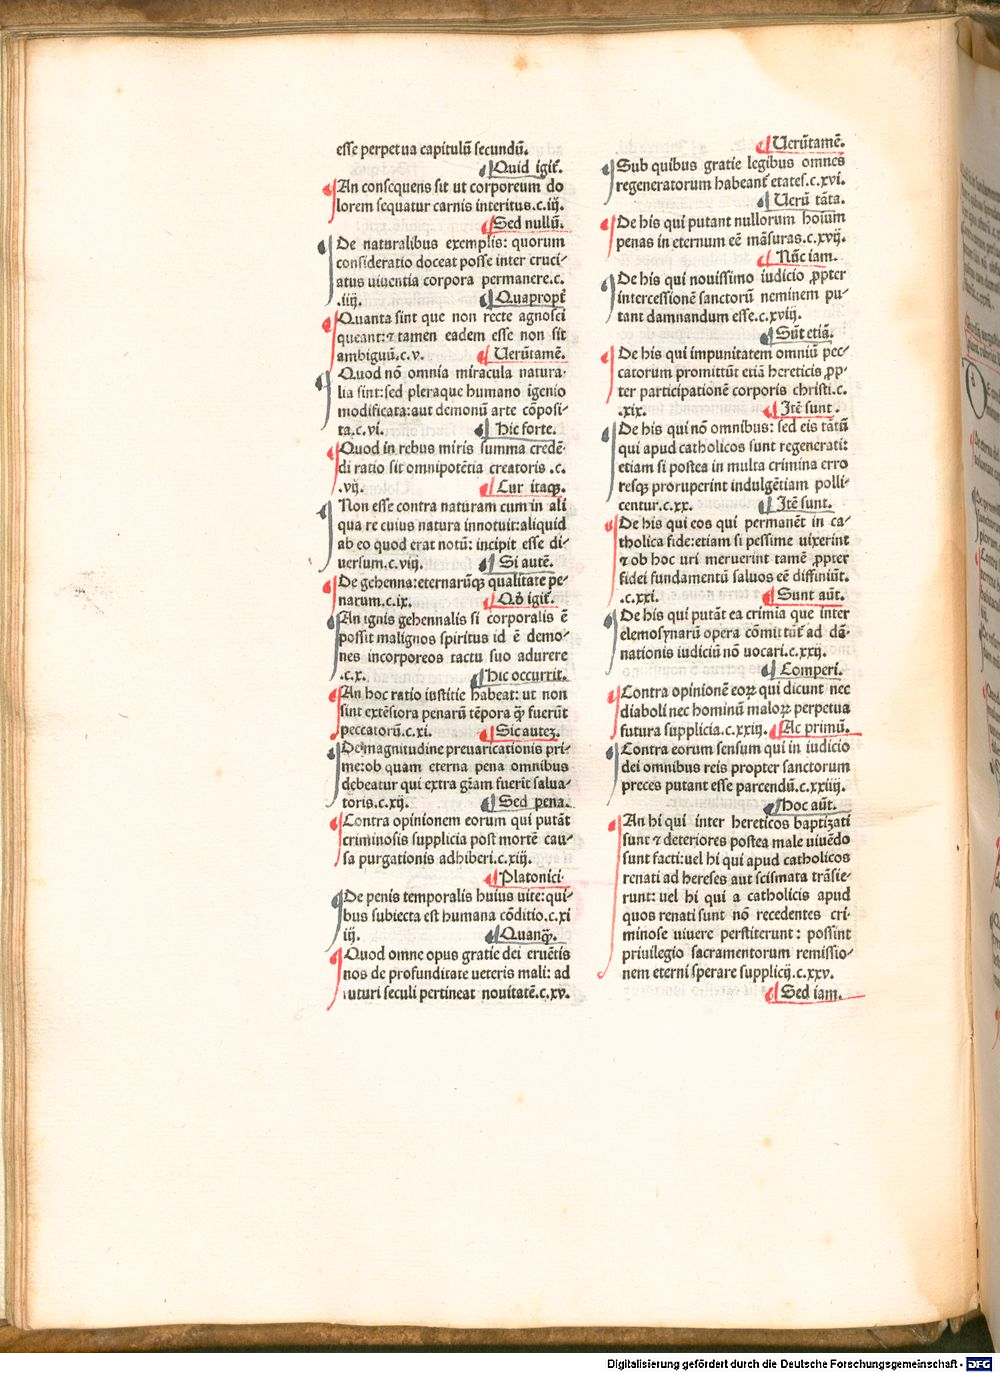 esse perpetua capitulū secundū.
Quid igit᷑.
An consequens sit ut corporeum do
lorem sequatur carnis interitus.c.iij.
Sed nullū.
De naturalibus exemplis: quorum
consideratio doceat posse inter cruci⸗
atus uiuentia corpora permanere.c.
.iiij. Quapropt᷑
Quanta sint que non recte agnosci
queant:⁊ tamen eadem esse non sit
ambiguū.c.v. Uerūtamē.
Quod nō omnia miracula natura⸗
lia sint:sed pleraque humano igenio
modificata:aut demonū arte cōposi⸗
ta.c.vi. Hic forte.
Quod in rebus miris summa credē⸗
di ratio sit omnipotētia creatoris .c.
.vij. Cur itaqꝫ.
Non esse contra naturam cum in ali
qua re cuius natura innotuit:aliquid
ab eo quod erat notū: incipit esse di⸗
uersum.c.viij. Si autē.
De gehenna:eternarūqꝫ qualitate pe⸗
narum.c.ix. Qđ igit᷑.
An ignis gehennalis si corporalis ē
possit malignos spiritus id ē demo⸗
nes incorporeos tactu suo adurere
.c.x. Hic occurrit.
An hoc ratio iustitie habeat: ut non
sint extēsiora penarū tēpora q̄ꝫ fuerūt
peccatorū.c.xi. Sic autez.
De magnitudine preuaricationis pri⸗
me:ob quam eterna pena omnibus
debeatur qui extra gr̄am fuerit salua⸗
toris.c.xij. Sed pena.
Contra opinionem eorum qui putāt
criminosis supplicia post mortē cau⸗
sa purgationis adhiberi.c.xiij.
Platonici
De penis temporalis huius uite:qui⸗
bus subiecta est humana cōditio.c.xi
iij. Quanq̄ꝫ.
Quod omne opus gratie dei eruētis
nos de profunditate ueteris mali: ad
futuri seculi pertineat nouitatē.c.xv.
Uerūtamē.
Sub quibus gratie legibus omnes
regeneratorum habeant᷑ etates.c.xvi.
Uerū tāta.
De his qui putant nullorum hoium
penas in eternum eē māsuras.c.xvij.
Nūc iam.
De his qui nouissimo iudicio ꝓpter
intercessionē sanctorū neminem pu⸗
tant damnandum esse.c.xviij.
Sūt etiā.
De his qui impunitatem omniū pec⸗
catorum promittūt etiā hereticis ꝓp⸗
ter participationē corporis christi.c.
.xix. Itē sunt .
De his qui nō omnibus: sed eis tātū
qui apud catholicos sunt regenerati:
etiam si postea in multa crimina erro
resqꝫ proruperint indulgētiam polli⸗
centur.c.xx. Itē sunt.
De his qui eos qui permanēt in ca⸗
tholica fide:etiam si pessime uixerint
⁊ ob hoc uri meruerint tamē ꝓpter
fidei fundamentū saluos eē diffiniūt.
.c.xxi. Sunt aūt.
De his qui putāt ea crimia que inter
elemosynarū opera cōmittūt᷑ ad dā⸗
nationis iudiciū nō uocari.c.xxij.
Comperi.
Contra opinionē eoꝝ qui dicunt nec
diaboli nec hominū maloꝝ perpetua
futura supplicia.c.xxiij. Ac primū.
Contra eorum sensum qui in iudicio
dei omnibus reis propter sanctorum
preces putant esse parcendū.c.xxiiij.
Hoc aūt.
An hi qui inter hereticos baptizati
sunt ⁊ deteriores postea male uiuēdo
sunt facti:uel hi qui apud catholicos
renati ad hereses aut scismata trāsie⸗
runt: uel hi qui a catholicis apud
quos renati sunt nō recedentes cri⸗
minose uiuere perstiterunt: possint
priuilegio sacramentorum remissio⸗
nem eterni sperare supplicij.c.xxv.
Sed iam.
Digitalisierung gefördert durch die Deutsche Forschungsgemeinschaft - DFG